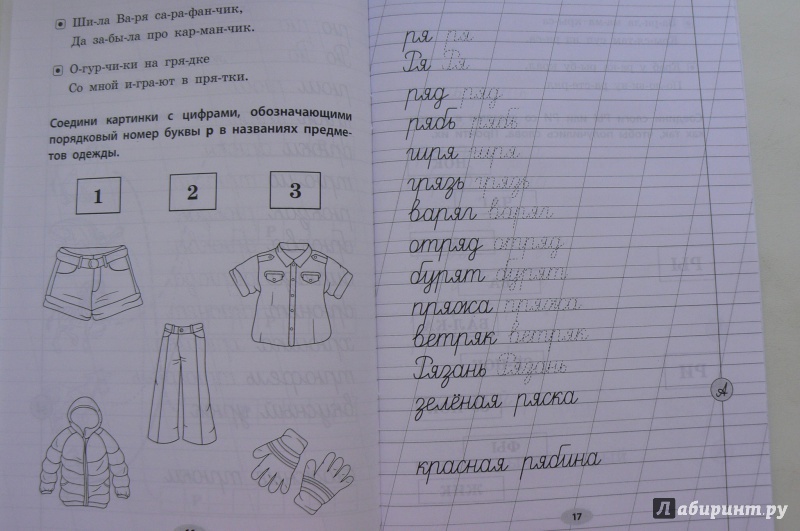 Ши-ла Ва-ря са-ра-фан-чик,
Да за-бы-ла про кар-ман-чик.
О-гур-чи-ки на гря-дке
Со мной и-гра-ют в пря-тки.
Соедини картинки с цифрами, обозначающими
порядковый номер буквы р в названиях предме-
тов одежды.
1 2 3
ря ря
Ря Ря
ряд ряд
рябь рябь
гиря гиря
грязь грязь
варяг варяг
отряд отряд
бурят бурят
пряжа пряжа
ветряк ветряк
Рязань Рязань
зелёная ряска
А
красная рябина
17
Лабиринт.ру